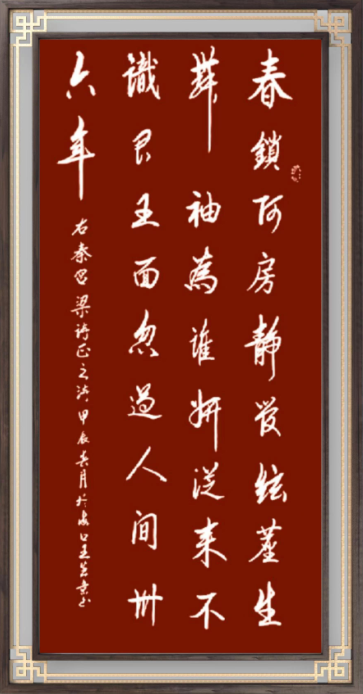 春鎖阿房靜管絃塵生
舞袖為誰妍從來不
識君王面忽過人間卅
六年
右秦宮梁詩正之詩甲辰 月於海口王 书